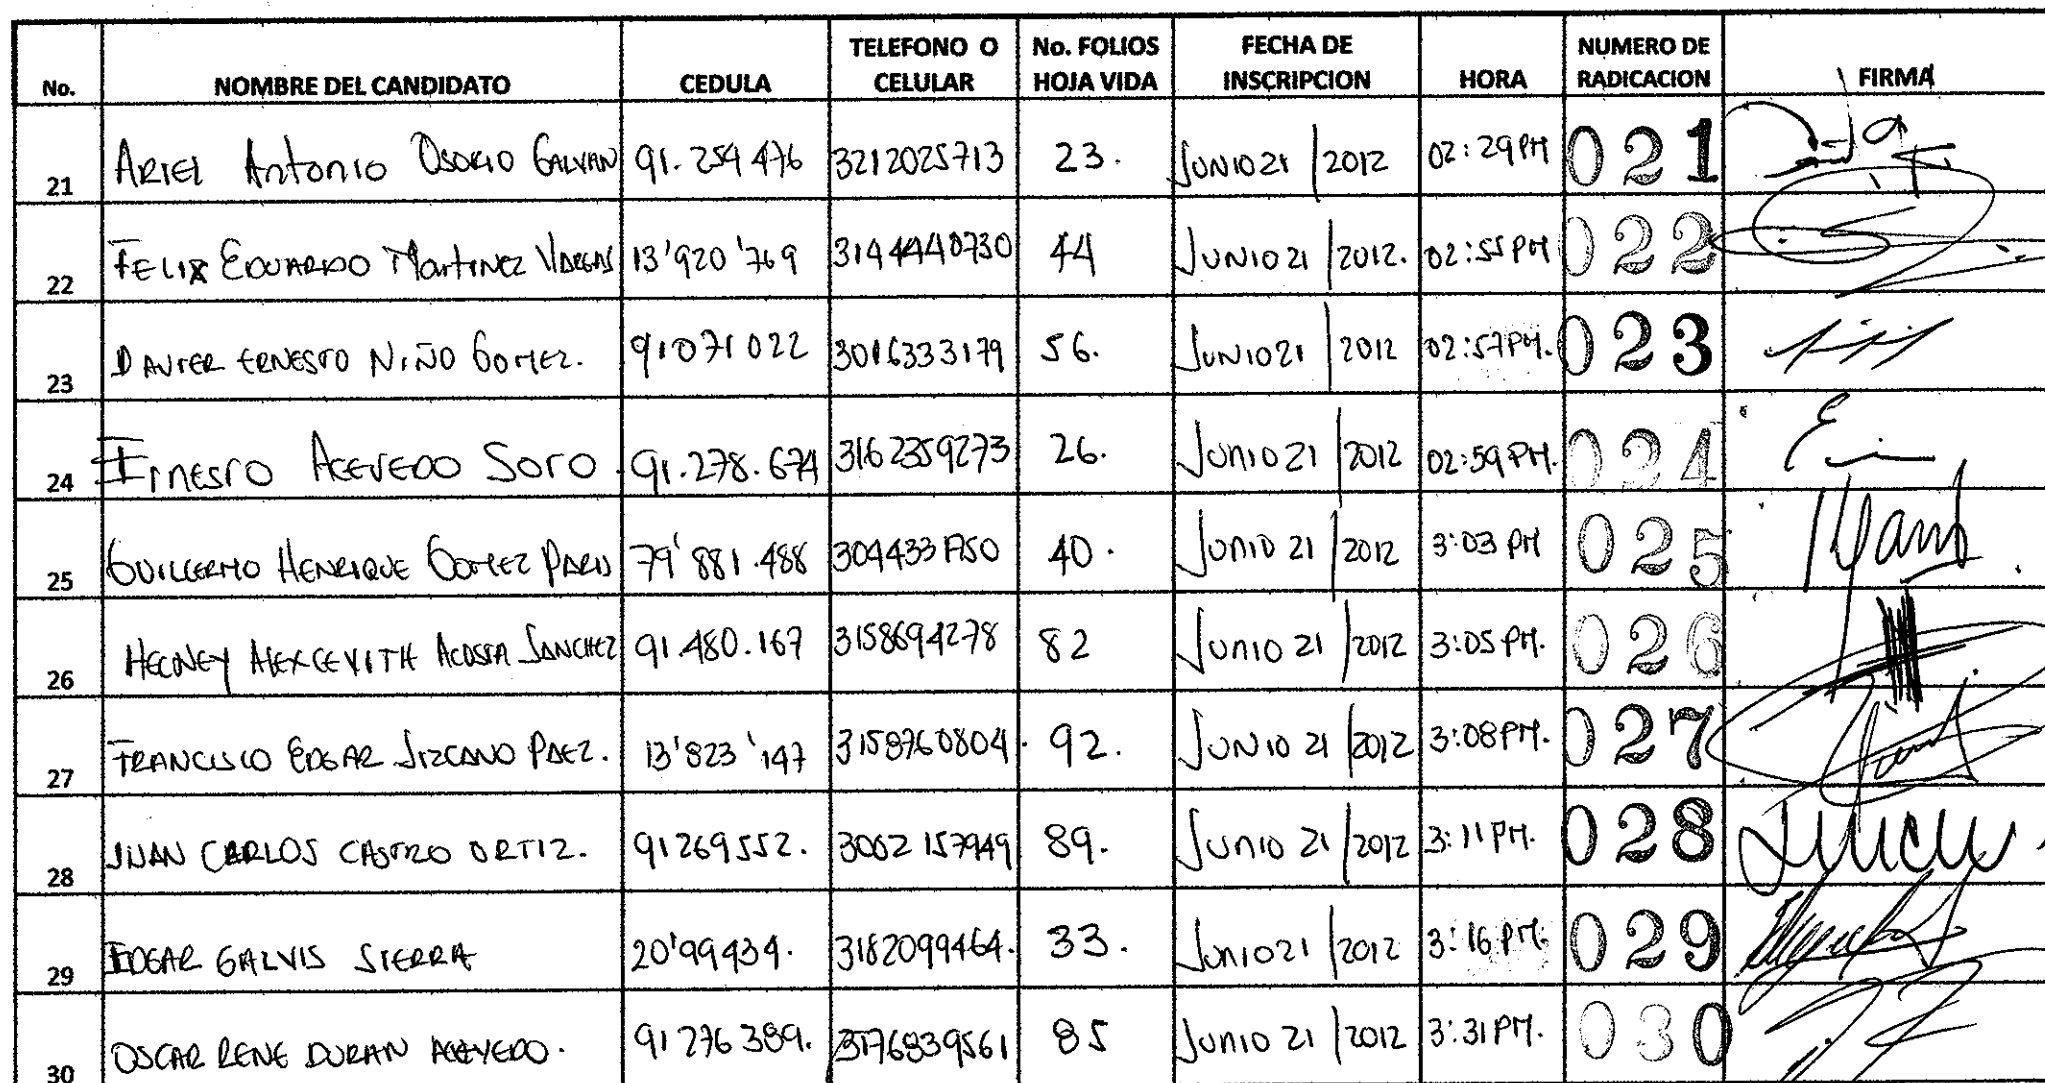 No. NOMBRE DEL CANDIDATO CEDULA TELEFONO O CELULAR No. FOLIOS HOJA VIDA FECHA DE INSCRIPCION HORA NUMERO DE RADICACION FIRMA
21 ARIEL Antonio OSORIO GALVAN 91.254476 3212025713 23. JUNIO 21/2012 02:29PM 021
22 FELIX EDUARDO MARTINEZ VARGAS 13'920'769 3144440730 44 JUNIO 21/2012. 02:55PM 022
23 DAVIER ERNESTO NIÑO GOMEZ. 91071022 3016333179 56. JUNIO 21/2012 02:57PM. 023
24 ERNESTO ACEVEDO SOTO. 91.278.674 3162359273 26. JUNIO 21/2012 02:59PM. 024
25 GUILLERMO HENRIQUE GOMEZ PARIS 79'881.488 40. JUNIO 21/2012 3:03 PM 025
26 ACOSTA SANCHEZ 91.480.167 3158694278 82 JUNIO 21/2012 3:05 PM. 026
27 FRANCISCO EDGAR PAEZ. 13'823'147 3158760804. 92. JUNIO 21/2012 3:08PM. 027
28 JUAN CARLOS CASTRO ORTIZ. 91269552. 3002157949 89. JUNIO 21/2012 3:11PM. 028
29 EDGAR GALVIS SIERRA 20'99434. 3182099464. 33. JUNIO 21/2012 3:16 PM. 029
30 OSCAR RENE DURAN ACEVEDO. 91276389. 3176839561 85 JUNIO 21/2012 3:31PM. 030